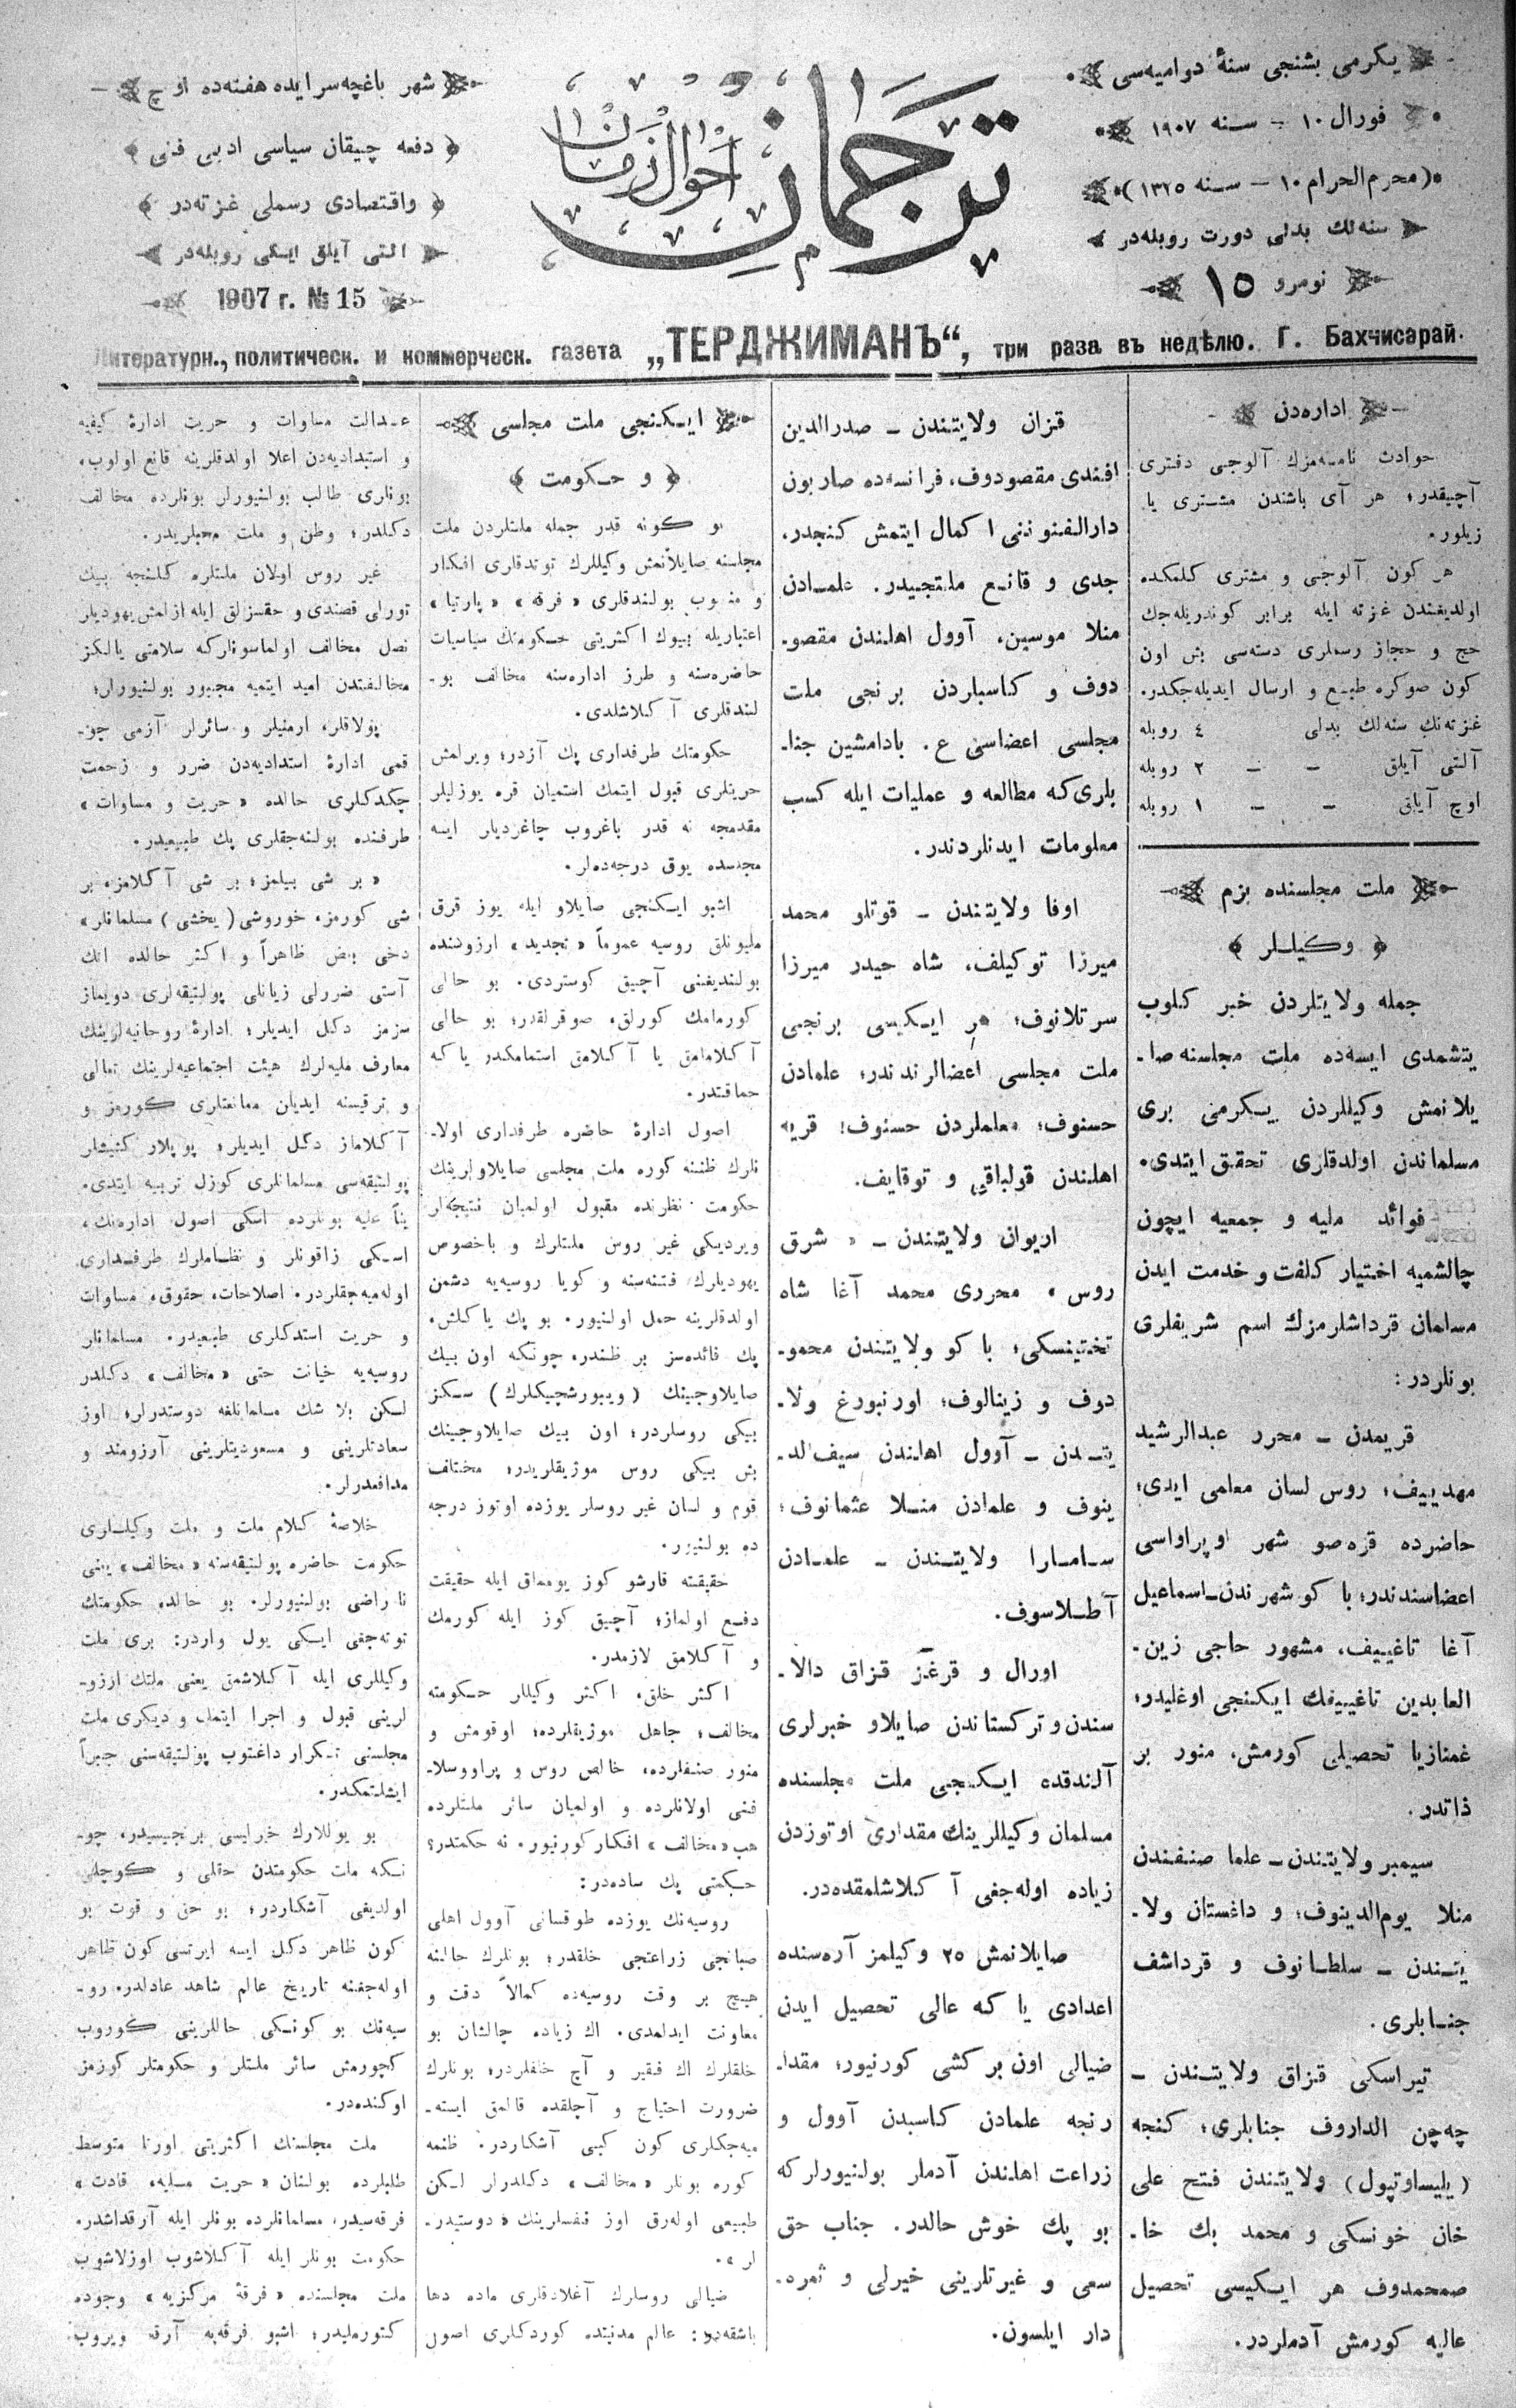 يكرمى بشنجى سنهٔ دواميه‌سى
فورال ١٠ – سنه ١٩٠٧
(محرم الحرام ١٠ – سنه ١٣٢٥)
سنه‌لك بدلى دورت روبله‌در
نومرو ١٥
ترجمان
احوال زمان
شهر باغچه‌سرايده هفته‌ده اوچ
دفعه چيقان سياسى ادبى فنى
واقتصادى رسملى غزته‌در
التى آيلق ايكى روبله‌در
1907 г. № 15
Литературн., политическ. и коммерческ. газета „ТЕРДЖИМАНЪ“, три раза въ недѣлю. Г. Бахчисарай.
اداره‌دن
حوادث نامه‌مزك آلوجى دفترى
آچيقدر؛ هر آى باشندن مشترى يا
زيلور.
هر كون آلوجى و مشترى كلمكده
اولديغندن غزته ايله برابر كوندريله‌جك
حج و حجاز رسملرى دسته‌سى بش اون
كون صوكره طبع و ارسال ايديله‌جكدر.
غزته‌نك سنه‌لك بدلى ٤ روبله
آلتى آيلق – – ٢ روبله
اوچ آيلق – – ١ روبله
ملت مجلسنده بزم
﴿ وكيللر ﴾
جمله ولايتلردن خبر كلوب
يتشمدى ايسه‌ده ملت مجلسنه صا-
يلانمش وكيللردن يكرمى برى
مسلماندن اولدقلرى تحقق ايتدى.
فوائد مليه و جمعيه ايچون
چالشميه اختيار كلفت و خدمت ايدن
مسلمان قرداشلرمزك اسم شريفلرى
بونلردر:
قريمدن – محرر عبدالرشيد
مهدييف؛ روس لسان معلمى ايدى؛
حاضرده قره‌صو شهر اوپراواسى
اعضاسندندر؛ باكو شهرندن–اسماعيل
آغا تاغييف، مشهور حاجى زين-
العابدين تاغييفك ايكنجى اوغليدر؛
غمنازيا تحصيلى كورمش، منور بر
ذاتدر.
سيمبر ولايتندن– علما صنفندن
منلا يوم‌الدينوف؛ و داغستان ولا-
يتندن – سلطانوف و قرداشف
جنابلرى.
تيراسكى قزاق ولايتندن –
چه‌چن الداروف جنابلرى؛ كنجه
(يليساوتپول) ولايتندن فتح على
خان خونسكى و محمد بك خا-
صمحمدوف هر ايكيسى تحصيل
عاليه كورمش آدملردر.
قزان ولايتندن – صدرالدين
افندى مقصودوف، فرانسه‌ده صاربون
دارالفنوننى اكمال ايتمش كنجدر،
جدى و قانع ملتجيدر. علمادن
منلا موسين، آوول اهلندن مقصو-
دوف و كاسبلردن برنجى ملت
مجلسى اعضاسى ع. بادامشين جنا-
بلرى‌كه مطالعه و عمليات ايله كسب
معلومات ايدنلردندر.
اوفا ولايتندن – قوتلو محمد
ميرزا توكيلف، شاه حيدر ميرزا
سرتلانوف؛ هر ايكيسى برنجى
ملت مجلسى اعضالرندندر؛ علمادن
حسنوف؛ معلملردن حسنوف؛ قريه
اهلندن قولباقى و توقايف.
اريوان ولايتندن – « شرق
روس » محررى محمد آغا شاه
تختينسكى؛ باكو ولايتندن محمو-
دوف و زينالوف؛ اورنبورغ ولا-
يتندن – آوول اهلندن سيف‌الد-
ينوف و علمادن منلا عثمانوف؛
سامارا ولايتندن – علمادن
آطلاسوف.
اورال و قرغز قزاق دالا-
سندن و تركستاندن صايلاو خبرلرى
آلندقده ايكنجى ملت مجلسنده
مسلمان وكيللرينك مقدارى اوتوزدن
زياده اوله‌جغى آكلاشلمقده‌در.
صايلانمش ٢٥ وكيلمز آره‌سنده
اعدادى ياكه عالى تحصيل ايدن
ضيالى اون بر كشى كورنيور؛ مقدا-
رنجه علمادن كاسبدن آوول و
زراعت اهلندن آدملر بولنيورلركه
بو پك خوش حالدر. جناب حق
سعى و غيرتلرينى خيرلى و ثمره-
دار ايلسون.
ايكنجى ملت مجلسى
﴿ و حكومت ﴾
بو كونه قدر جمله ملتلردن ملت
مجلسنه صايلانمش وكيللرك توتدقلرى افكار
و منسوب بولندقلرى « فرقه » « پارتيا »
اعتباريله بيوك اكثريتى حكومتك سياسيات
حاضره‌سنه و طرز اداره‌سنه مخالف بو-
لندقلرى آكلاشلدى.
حكومتك طرفدارى پك آزدر؛ ويرلمش
حريتلرى قبول ايتمك استميان قره يوزليلر
مقدمجه نه قدر باغروب چاغرديلر ايسه
مجلسده يوق درجه‌ده‌لر.
اشبو ايكنجى صايلاو ايله يوز قرق
مليونلق روسيه عموماً « تجديد » ارزوسنده
بولنديغنى آچيق كوستردى. بو حالى
كورمامك كورلق، صوقرلقدر؛ بو حالى
آكلامامق يا آكلامق استمامكدر ياكه
حماقتدر.
اصول ادارهٔ حاضره طرفدارى اولا-
نلرك ظننه كوره ملت مجلسى صايلاولرينك
حكومت نظرنده مقبول اولميان نتيجه‌لر
ويرديكى غير روس ملتلرك و باخصوص
يهوديلرك فتنه‌سنه و كويا روسيه‌يه دشمن
اولدقلرينه حمل اولنيور. بو پك ياكلش،
پك فائده‌سز بر ظندر، چونكه اون بيك
صايلاوجينك (ويبورشچيكلرك) سكز
بيكى روسلردر؛ اون بيك صايلاوجينك
بش بيكى روس موژيقلريدر؛ مختلف
قوم و لسان غير روسلر يوزده اوتوز درجه
ده بولنيور.
حقيقته قارشو كوز يومماق ايله حقيقت
دفع اولماز؛ آچيق كوز ايله كورمك
و آكلامق لازمدر.
اكثر خلق، اكثر وكيللر حكومته
مخالف؛ جاهل موژيقلرده؛ اوقومش و
منور صنفلرده، خالص روس و پراووسلا-
فنى اولانلرده و اولميان سائر ملتلرده
هب « مخالف » افكار كورنيور. نه حكمتدر؟
حكمتى پك ساده‌در:
روسيه‌نك يوزده طوقسانى آوول اهلى
صبانجى زراعتجى خلقدر؛ بونلرك حالنه
هيچ بر وقت روسيه‌ده كمالاً دقت و
معاونت ايدلمدى. اك زياده چالشان بو
خلقلرك اك فقير و آچ خلقلردر؛ بونلرك
ضرورت احتياج و آچلقده قالمق ايسته-
ميه‌جكلرى كون كبى آشكاردر. ظنمه
كوره بونلر « مخالف » دكلدرلر ليكن
طبيعى اوله‌رق اوز نفسلرينك « دوستيدر-
لر ».
ضيالى روسلرك آغلادقلرى ماده دها
باشقه‌در: عالم مدنيتده كوردكلرى اصول
عدالت مساوات و حريت ادارهٔ كيفيه
و استبداديه‌دن اعلا اولدقلرينه قانع اولوب،
بونلرى طالب بولنيورلر. بونلرده مخالف
دكلدر؛ وطن و ملت محبلريدر.
غير روس اولان ملتلره كلنجه بيك
تورلى قصندى و حقسزلق ايله ازلمش يهوديلر
نصل مخالف اولماسونلركه سلامتى يالكز
مخالفتدن اميد ايتميه مجبور بولنيورلر؛
پولاقلر، ارمنيلر و سائرلر آزمى چو-
قمى ادارهٔ استداديه‌دن ضرر و زحمت
چكدكلرى حالده « حريت و مساوات »
طرفنده بولنه‌جقلرى پك طبيعيدر.
« بر شى بيلمز؛ بر شى آكلامز، بر
شى كورمز، خوروشى (يخشى) مسلمانلر »
دخى بعض ظاهراً و اكثر حالده انك
آستى ضررلى زيانلى پولتيقه‌لرى دويماز
سزمز دكل ايديلر؛ ادارهٔ روحانيه‌لرينك
معارف مليه‌لرك هيئت اجتماعيه‌لرينك تعالى
و ترقيسنه ايديلن ممانعتلرى كورمز و
آكلاماز دكل ايديلر؛ پوپلار كنيشلر
پولتيقه‌سى مسلمانلرى كوزل تربيه ايتدى.
بناً عليه بونلرده اسكى اصول اداره‌نك،
اسكى زاقونلر و نظاملرك طرفدارى
اوله‌ميه‌جقلردر. اصلاحات، حقوق، مساوات
و حريت استدكلرى طبيعيدر. مسلمانلر
روسيه‌يه خيانت حتى « مخالف » دكلدر
لسكن بلا شك مسلمانلغه دوستدرلر؛ اوز
سعادتلرينى و مسعوديتلرينى آرزومند و
مدافعدرلر.
خلاصهٔ كلام ملت و ملت وكيللرى
حكومت حاضره پولتيقه‌سنه « مخالف » يعنى
نا راضى بولنيورلر. بو حالده حكومتك
توته‌جغى ايكى يول واردر: برى ملت
وكيللرى ايله آكلاشمق يعنى ملتك ارزو-
لرينى قبول و اجرا ايتمك و ديكرى ملت
مجلسنى تكرار داغتوب پولتيقه‌سنى جبراً
ايشلتمكدر.
بو يوللارك خيرليسى برنجيسيدر، چو-
نكه ملت حكومتدن حقلى و كوچلى
اولديغى آشكاردر؛ بو حق و قوت بو
كون ظاهر دكل ايسه ايرتسى كون ظاهر
اوله‌جغنه تاريخ عالم شاهد عادلدر. رو-
سيه‌نك بو كونكى حاللرينى كوروب
كچورمش سائر ملتلر و حكومتلر كوزمز
اوكنده‌در.
ملت مجلسنك اكثريتى اورتا متوسط
طلبلرده بولنان « حريت مسليه، قادت »
فرقه‌سيدر، مسلمانلرده بونلر ايله آرقداشدر.
حكومت بونلر ايله آكلاشوب اوزلاشوب
ملت مجلسنده « فرقهٔ مركزيه » وجوده
كتورمليدر؛ اشبو فرقه‌يه آرقه ويروب